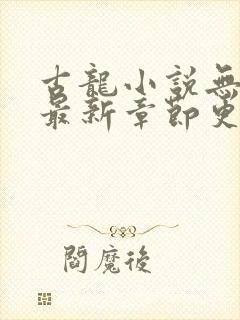 古龍小說無
最新章節更
閻魔後